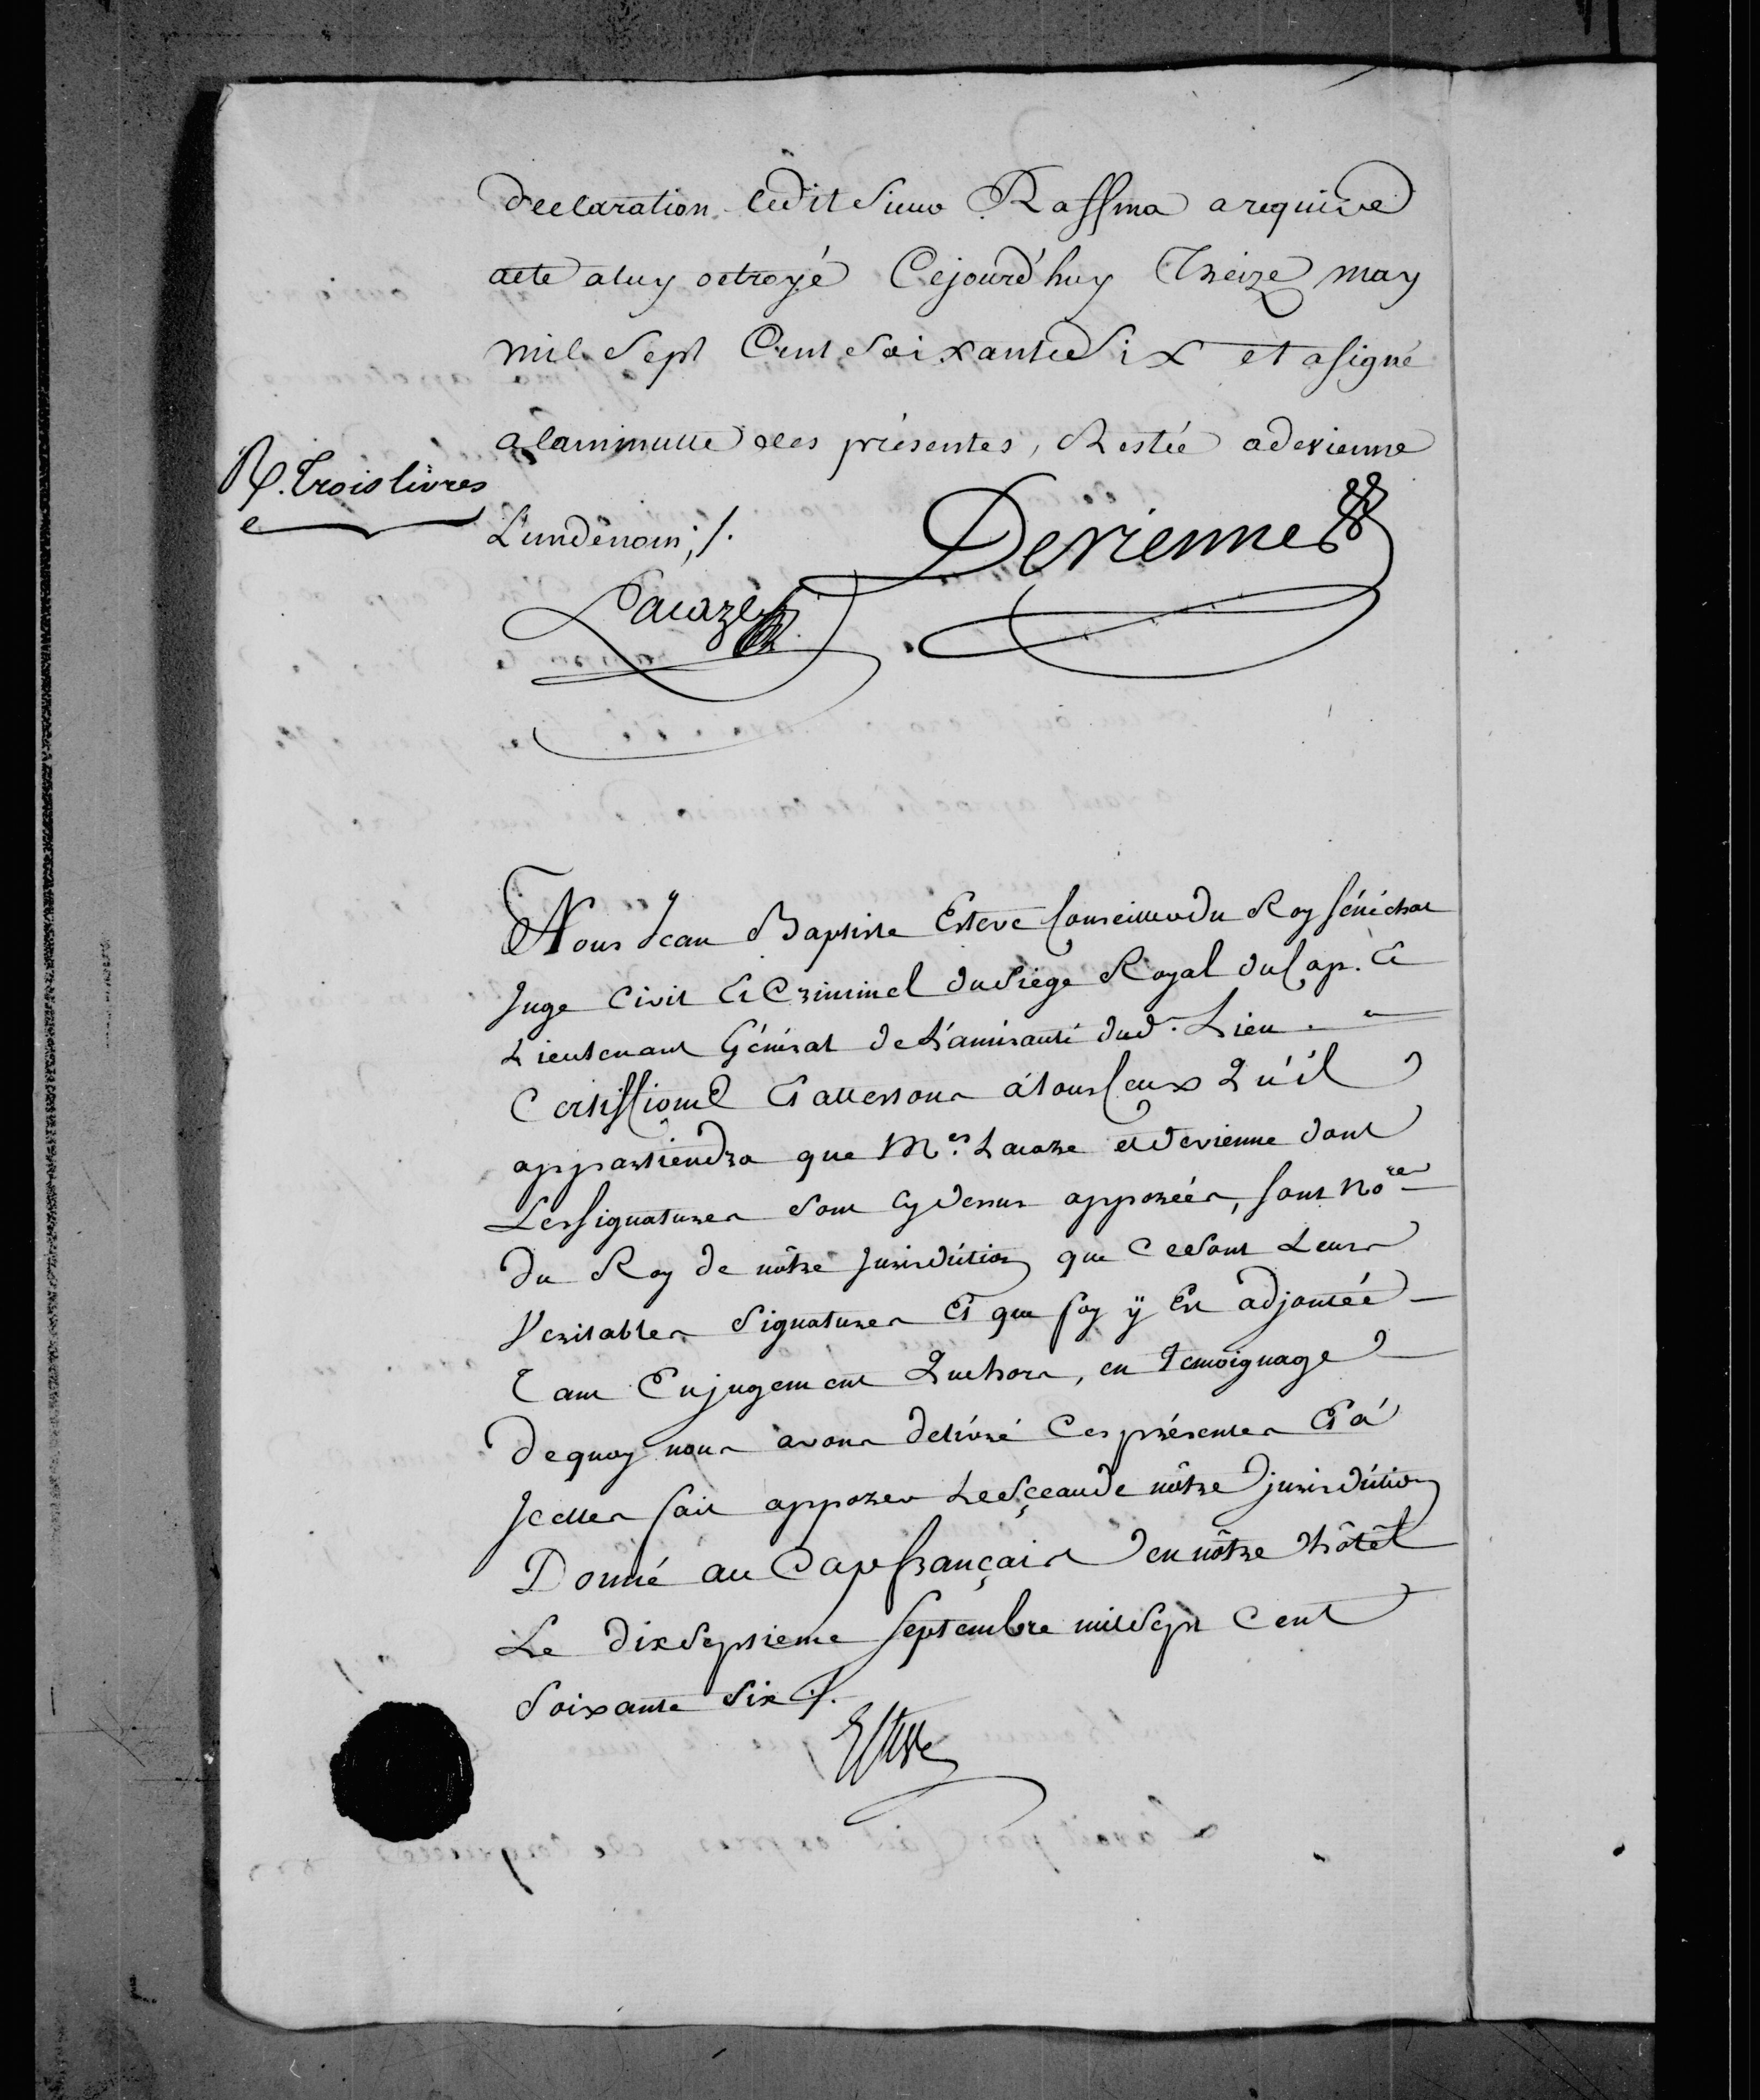 declaration ledit Sieur Raffma a requis
acte a luy octroyé Cejourd'huy Treize may
mil Sept Cent Soixante Six et a signé
a la minutte des présentes, Restée a devienne
R. Trois livres
L'un de nous ;/.
Devienne
Lauaze
Nous Jean Baptiste Esteve Conseiller du Roy Sénéchal
Juge Civil Et Criminel du Siege Royal du Cap. Et
Lieutenant Général de L'amirauté dud. Lieu.
Certiffions Et attestons à tous Ceux Qu'il
appartiendra que Mes. Lauaze et devienne dont
Les signatures sont cy dessus apposées, sont Nores
du Roy de nôtre Jurisdiction que Ce sont Leurs
Veritables Signatures Et que foy ÿ Est adjoutée
Tant En jugement Que hors, en Temoignage
De quoy nous avons delivré Ces présentes Et à
Jcelles fait apposer Le Sçeau de nôtre jurisdiction
Donné au Cap français en nôtre hôtêl
Le dix Septieme Septembre mil Sept Cent
Soixante Six ./.
Esteve